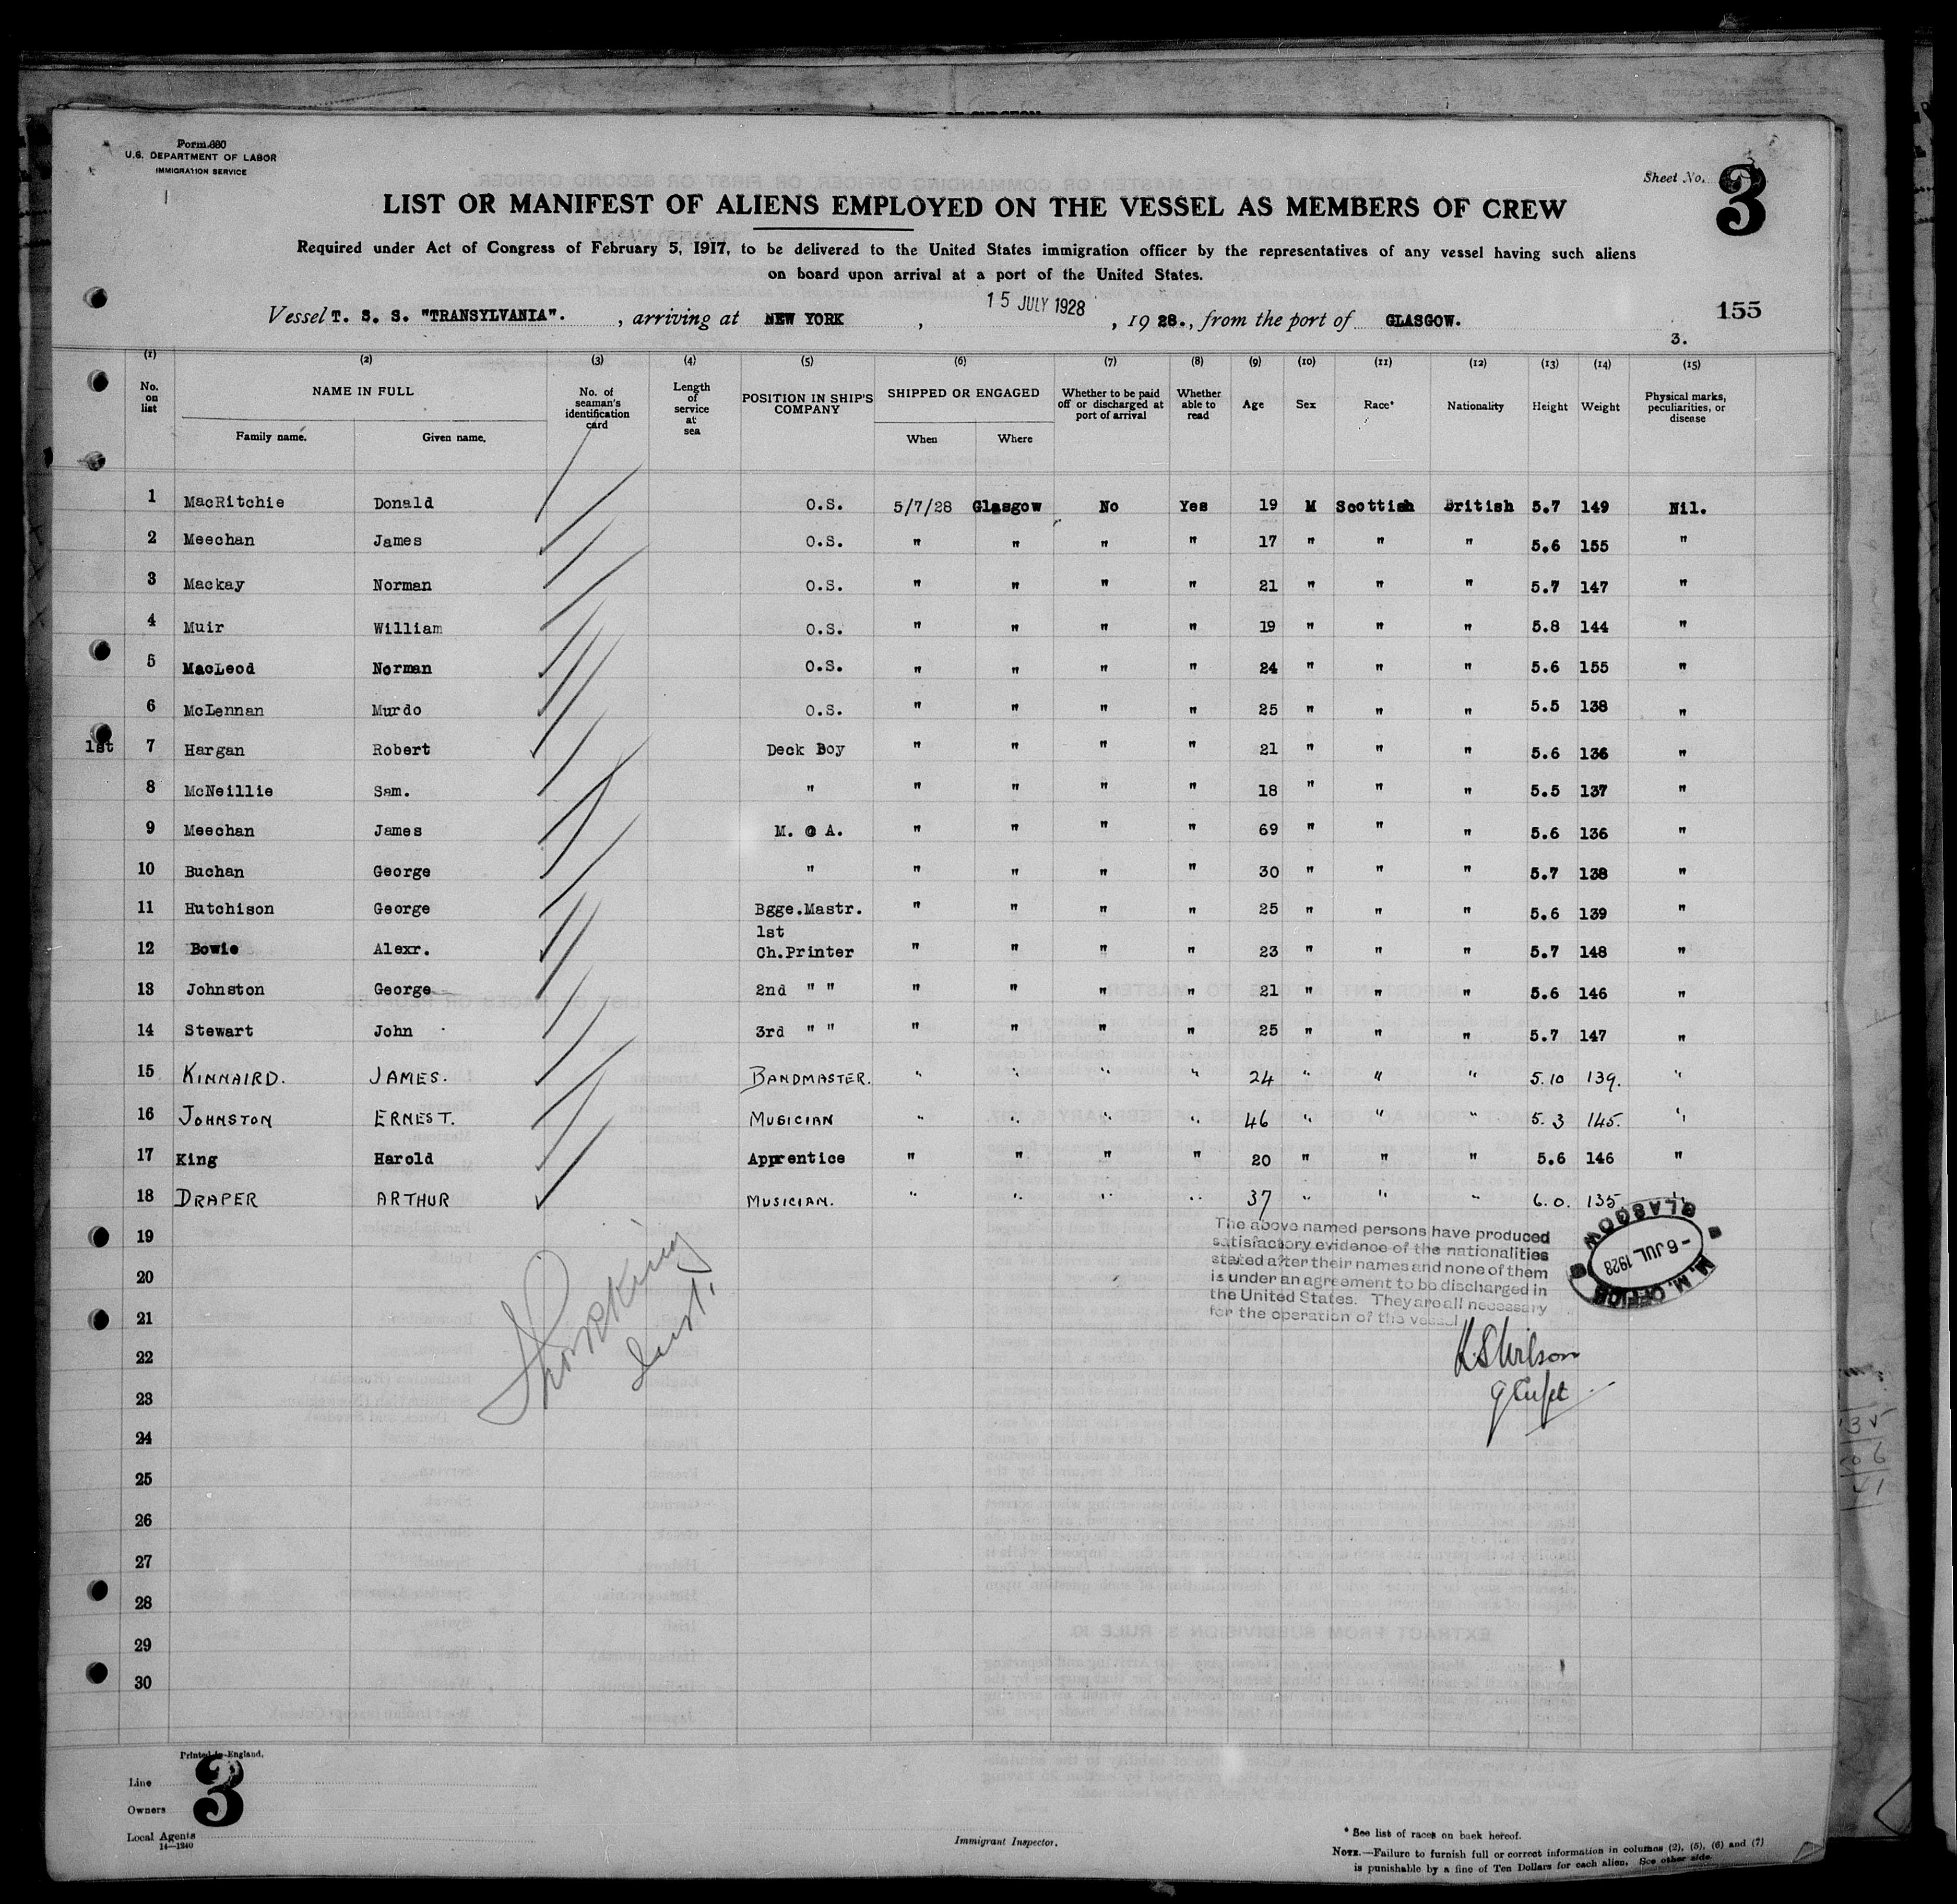 Form 680
U.S. DEPARTMENT OF LABOR
IMMIGRATION SERVICE
Sheet No. 3
LIST OR MANIFEST OF ALIENS EMPLOYED ON THE VESSEL AS MEMBERS OF CREW
Required under Act of Congress of February 5, 1917, to be delivered to the United States immigration officer by the representatives of any vessel having such aliens
on board upon arrival at a port of the United States.
15 JULY 1928
155
Vessel T. S. S. "TRANSYLVANIA". , arriving at NEW YORK , , 19 28., from the port of GLASGOW.
3.
(1) (2) (3) (4) (5) (6) (7) (8) (9) (10) (11) (12) (13) (14) (15)
No. on list NAME IN FULL No. of seaman's identification card Length of service at sea POSITION IN SHIP'S COMPANY SHIPPED OR ENGAGED Whether to be paid off or discharged at port of arrival Whether able to read Age Sex Race* Nationality Height Weight Physical marks, peculiarities, or disease
Family name. Given name. When Where
1 MacRitchie Donald O.S. 5/7/28 Glasgow No Yes 19 M Scottish British 5.7 149 Nil.
2 Meechan James O.S. " " " " 17 " " " 5.6 155 "
3 Mackay Norman O.S. " " " " 21 " " " 5.7 147 "
4 Muir William O.S. " " " " 19 " " " 5.8 144 "
5 MacLeod Norman O.S. " " " " 24 " " " 5.6 155 "
6 McLennan Murdo O.S. " " " " 25 " " " 5.5 138 "
1st 7 Hargan Robert Deck Boy " " " " 21 " " " 5.6 136 "
8 McNeillie Sam. " " " " " 18 " " " 5.5 137 "
9 Meechan James M. @ A. " " " " 69 " " " 5.6 136 "
10 Buchan George " " " " " 30 " " " 5.7 138 "
11 Hutchison George Bgge.Mastr. " " " " 25 " " " 5.6 139 "
1st
12 Bowie Alexr. Ch.Printer " " " " 23 " " " 5.7 148 "
13 Johnston George 2nd " " " " " " 21 " " " 5.6 146 "
14 Stewart John 3rd " " " " " " 25 " " " 5.7 147 "
15 KINNAIRD. JAMES. BANDMASTER. " " " " 24 " " " 5.10 139. "
16 JOHNSTON ERNEST. MUSICIAN " " " " 46 " " " 5.3 145. "
17 King Harold Apprentice " " " " 20 " " " 5.6 146 "
18 DRAPER ARTHUR MUSICIAN. " " " " 37 " " " 6.0. 135 "
19
20
21
22
23
24
25
26
27
28
29
30
The above named persons have produced
satisfactory evidence of the nationalities
stated after their names and none of them
is under an agreement to be discharged in
the United States. They are all necessary
for the operation of the vessel
GLASGOW
- 6 JUL 1928
M. M. OFFICE
Wilson
Printed in England.
3
Line
Owners
Local Agents
14—1240
Immigrant Inspector.
* See list of races on back hereof.
NOTE.—Failure to furnish full or correct information in columns (2), (5), (6) and (7)
is punishable by a fine of Ten Dollars for each alien. See other side.